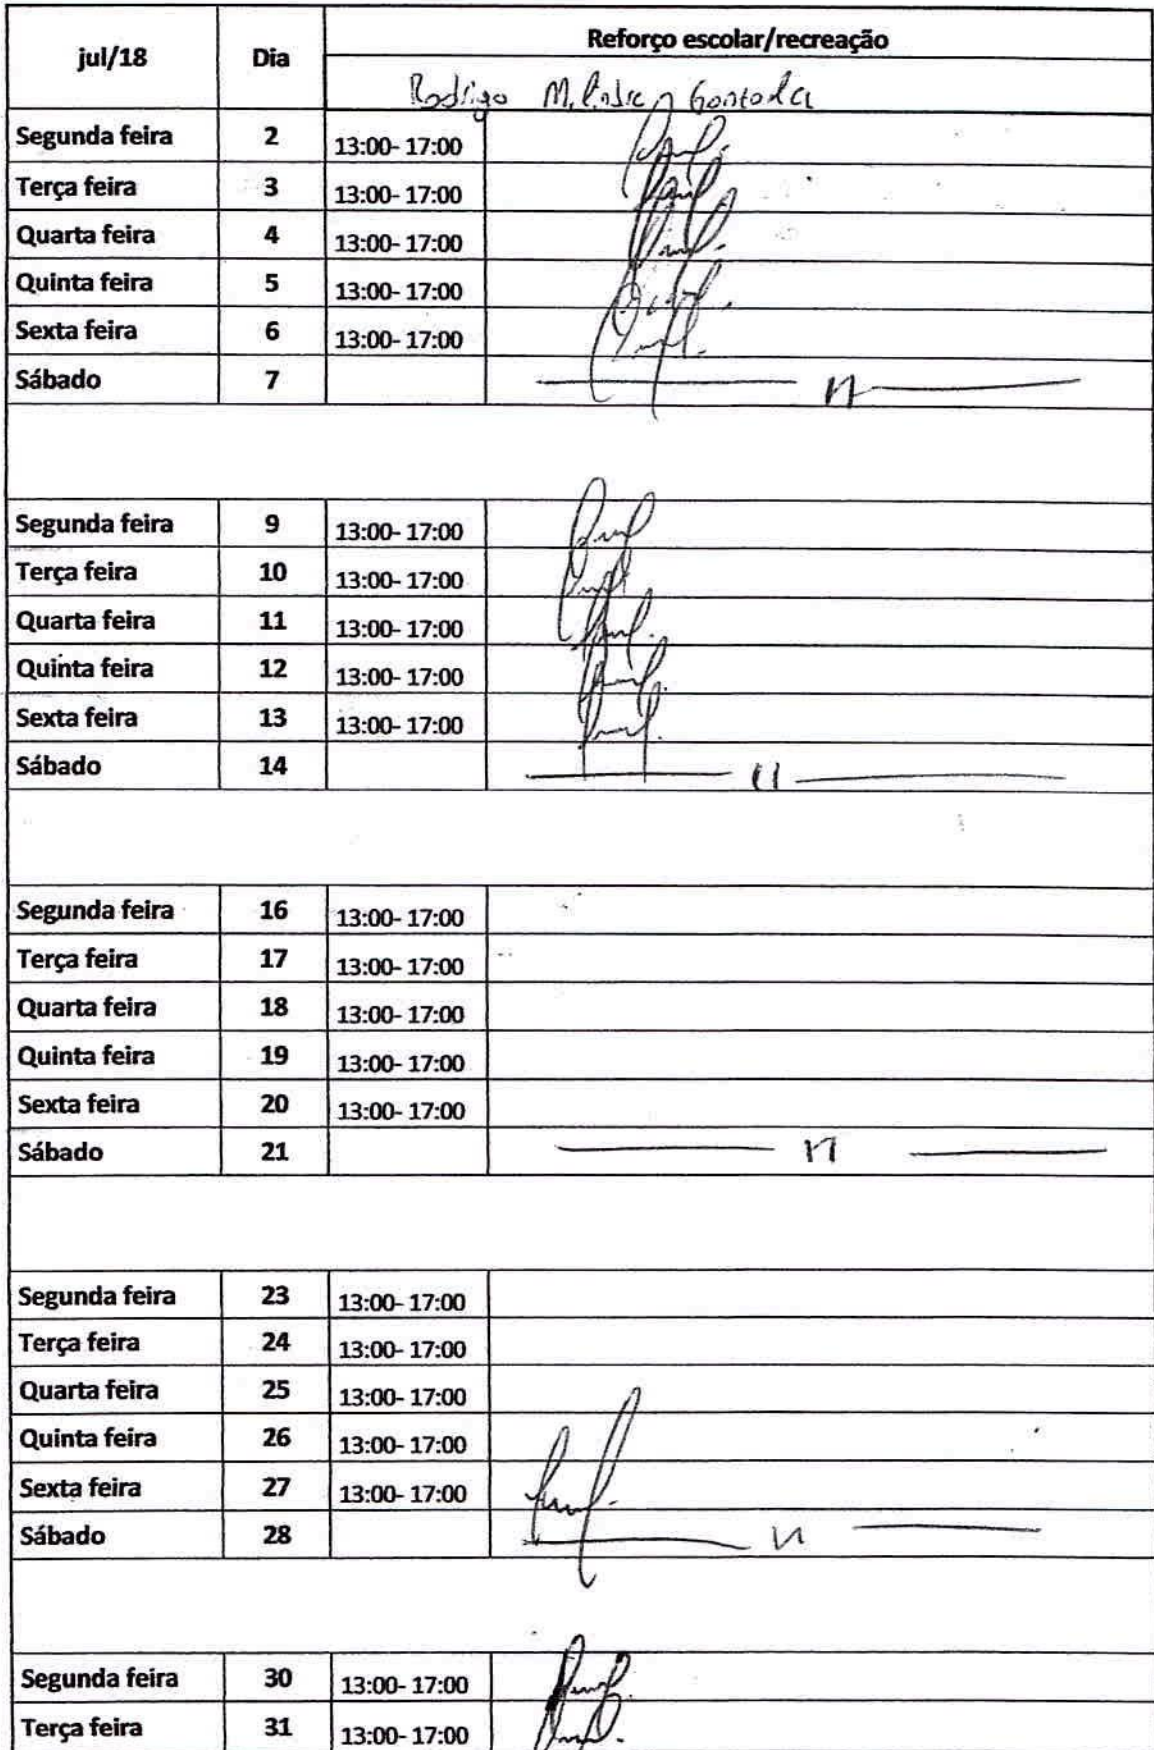 jul/18 Dia Reforço escolar/recreação
Rodrigo
Segunda feira 2 13:00-17:00
Terça feira 3 13:00-17:00
Quarta feira 4 13:00-17:00
Quinta feira 5 13:00-17:00
Sexta feira 6 13:00-17:00
Sábado 7
Segunda feira 9 13:00-17:00
Terça feira 10 13:00-17:00
Quarta feira 11 13:00-17:00
Quinta feira 12 13:00-17:00
Sexta feira 13 13:00-17:00
Sábado 14
Segunda feira 16 13:00-17:00
Terça feira 17 13:00-17:00
Quarta feira 18 13:00-17:00
Quinta feira 19 13:00-17:00
Sexta feira 20 13:00-17:00
Sábado 21
Segunda feira 23 13:00-17:00
Terça feira 24 13:00-17:00
Quarta feira 25 13:00-17:00
Quinta feira 26 13:00-17:00
Sexta feira 27 13:00-17:00
Sábado 28
Segunda feira 30 13:00-17:00
Terça feira 31 13:00-17:00